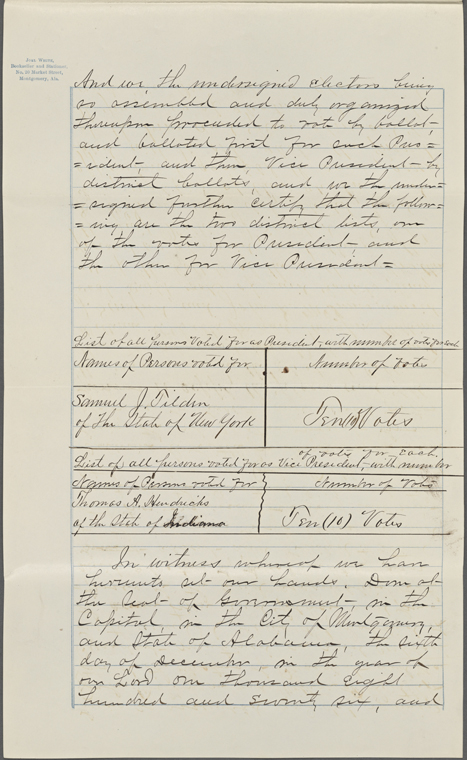 Joel White,
Bookseller and Stationer,
No. 20 Market Street,
Montgomery, Ala.
And we, the undersigned Electors being
so assembled and duly organized
thereupon proceeded to vote by ballot,
and balloted first for such Pres=
=ident, and then, Vice President by
district ballots, and we the under=
=signed further certify that the follow=
=ing are the two distinct lists, one
of the votes for President, and
the other for Vice President=
List of all persons voted for as President, with number of votes for each
Names of Persons voted for
Number of Votes
Samuel J. Tilden
of The State of New York
Ten (10) Votes
of votes for each
List of all persons voted for as Vice President, with number
Names of Persons voted for
Number of Votes
Thomas A. Hendricks
of the State of Indiana
Ten (10) Votes
In witness whereof we have
hereunto set our hands. Done at
the Seat of Government, in the
Capitol, in the City of Montgomery,
and State of Alabama, the sixth
day of December, in the year of
our Lord one thousand eight
hundred and seventy six, and